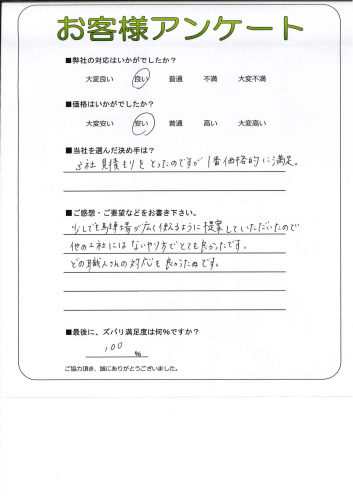 お客様アンケート
■弊社の対応はいかがでしたか?
大変良い 良い 普通 不満 大変不満
■価格はいかがでしたか?
大変安い 安い 普通 高い 大変高い
■当社を選んだ決め手は?
3社見積もりをとったのですが1番価格的に満足。
■ご感想・ご要望などをお書き下さい。
少しでも駐車場が広く使えるように提案していただいたので
他の2社にはないやり方でとても良かったです。
どの職人さんの対応も良かったです。
■最後に、ズバリ満足度は何%ですか?
100 %
ご協力頂き、誠にありがとうございました。